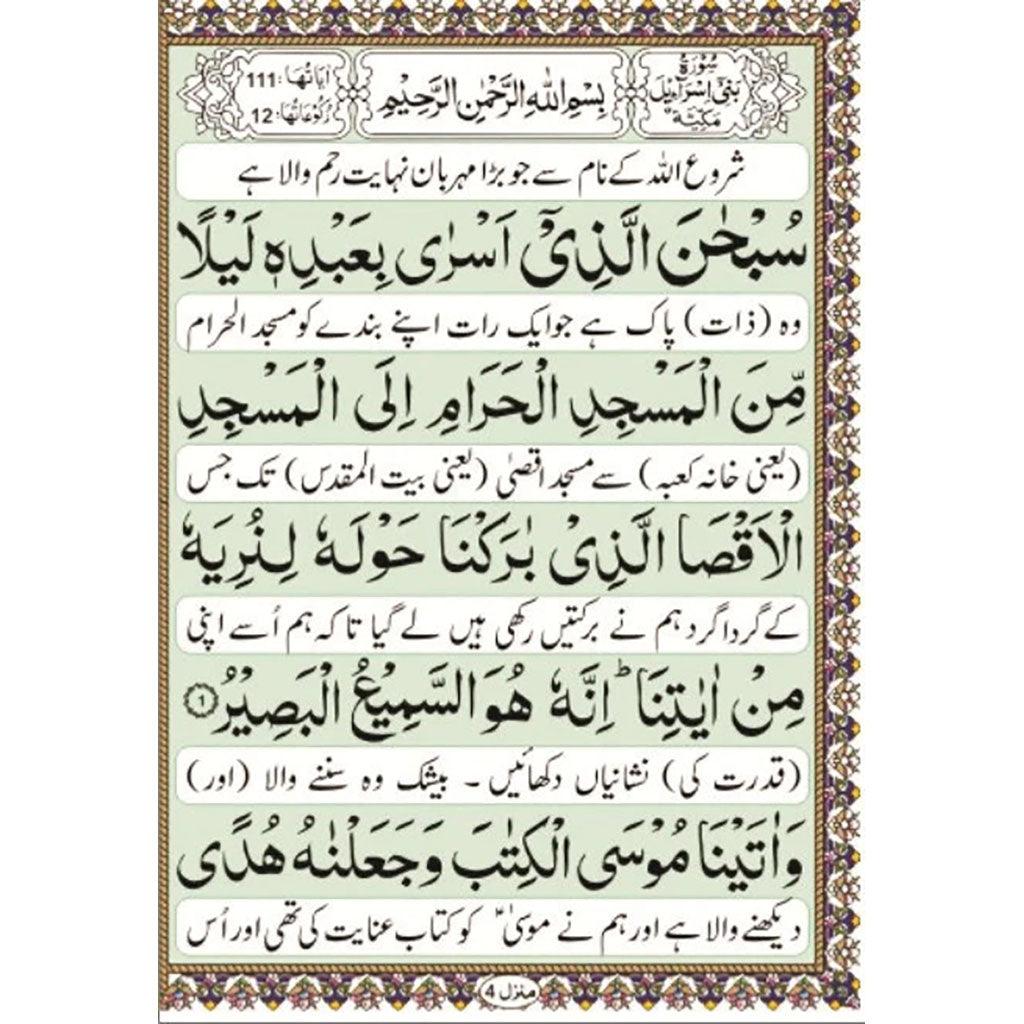 سُوْرَةُ بَنِیْٓ اِسْرَآءِیْلَ مَكِّیَّةٌ
بِسْمِ اللّٰهِ الرَّحْمٰنِ الرَّحِیْمِ
اٰیَاتُهَا: 111
رُكُوْعَاتُهَا: 12
شروع اللہ کے نام سے جو بڑا مہربان نہایت رحم والا ہے
سُبْحٰنَ الَّذِیْۤ اَسْرٰی بِعَبْدِهٖ لَیْلًا
وہ (ذات) پاک ہے جو ایک رات اپنے بندے کو مسجد الحرام
مِّنَ الْمَسْجِدِ الْحَرَامِ اِلَی الْمَسْجِدِ
(یعنی خانہ کعبہ) سے مسجد اقصیٰ (یعنی بیت المقدس) تک جس
الْاَقْصَا الَّذِیْ بٰرَكْنَا حَوْلَهٗ لِنُرِیَهٗ
کے گردا گرد ہم نے برکتیں رکھی ہیں لے گیا تا کہ ہم اُسے اپنی
مِنْ اٰیٰتِنَا ؕ اِنَّهٗ هُوَ السَّمِیْعُ الْبَصِیْرُ ١
(قدرت کی) نشانیاں دکھائیں ۔ بیشک وہ سننے والا (اور)
وَ اٰتَیْنَا مُوْسَی الْكِتٰبَ وَ جَعَلْنٰهُ هُدًی
دیکھنے والا ہے اور ہم نے موسیٰ ؑ کو کتاب عنایت کی تھی اور اُس
منزل 4